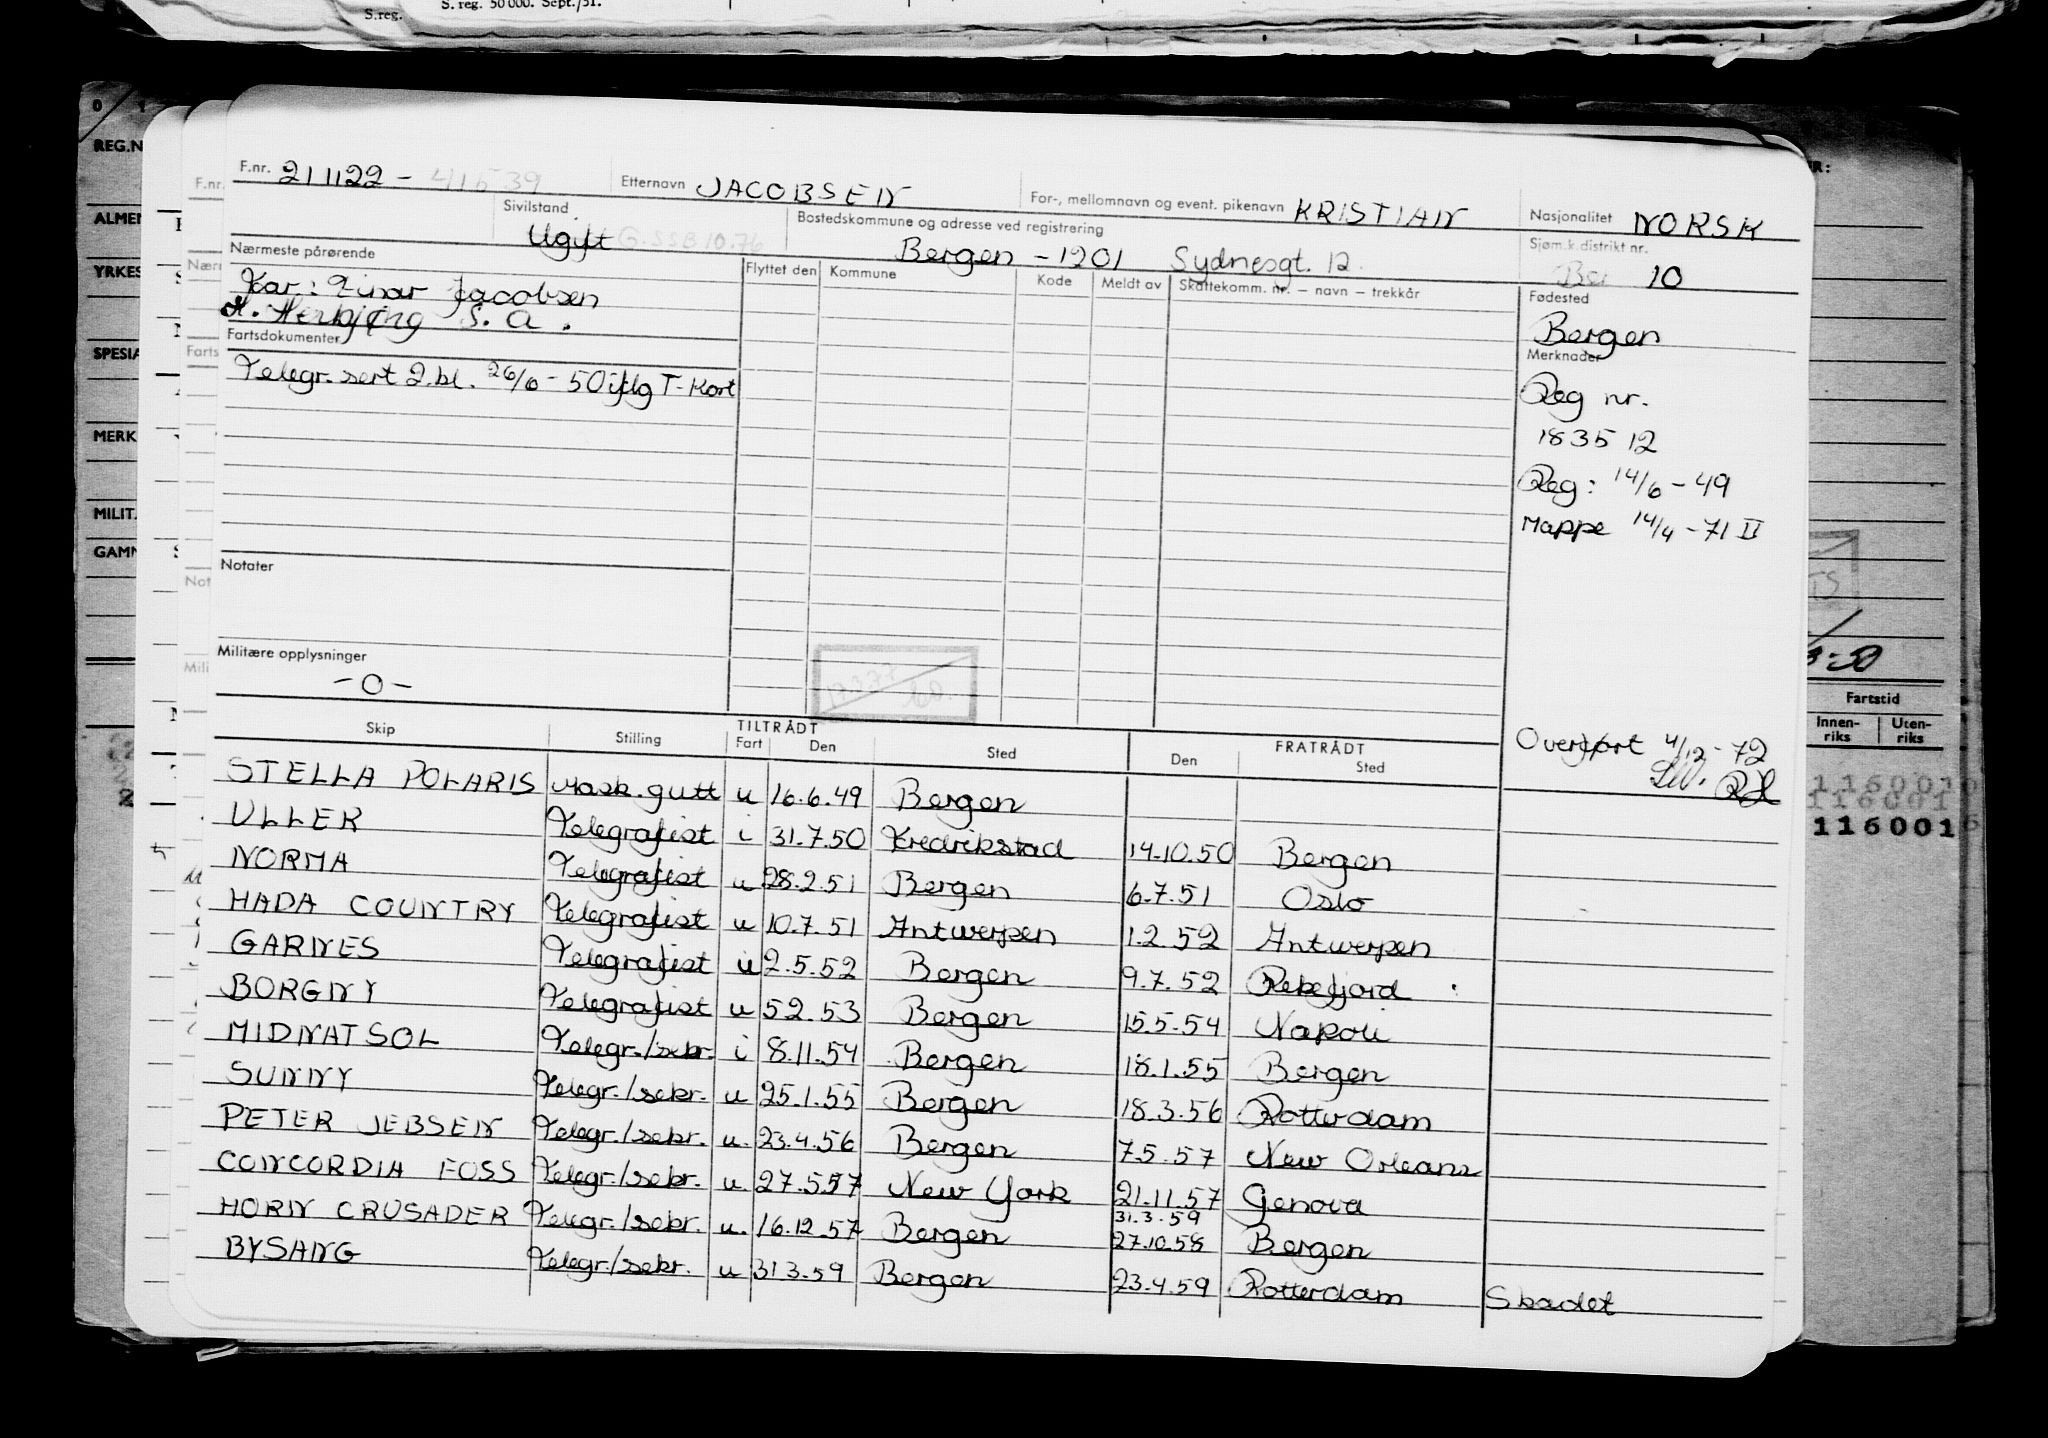 S.reg. S. reg. 50 000. Sept./51.
F.nr. 211122 - 41539 Etternavn JACOBSEN For-, mellomnavn og event. pikenavn KRISTIAN Nasjonalitet NORSK
Sivilstand Ugift G.SSB 10.76 Bostedskommune og adresse ved registrering Bergen - 1201 Sydnesgt. 12. Sjøm.k.distrikt nr. Ber 10
Nærmeste pårørende Flyttet den Kommune Kode Meldt av Skattekomm. nr. — navn — trekkår Fødested
Far: Einar Jacobsen Bergen
M. Herbjørg s. a.
Fartsdokumenter Merknader
Telegr. sert 2.bl. 26/6 - 50 iflg T-Kort Reg nr.
183512
Reg: 14/6 - 49
Mappe 14/4 - 71 II
Notater
Militære opplysninger
-0-
TILTRÅDT FRATRÅDT
Skip Stilling Fart Den Sted Den Sted
Overført 4/12 - 72
STELLA POLARIS Mask.gutt u 16.6.49 Bergen
ULLER Telegrafist i 31.7.50 Fredrikstad 14.10.50 Bergen
NORMA Telegrafist u 28.2.51 Bergen 6.7.51 Oslo
HADA COUNTRY Telegrafist u 10.7.51 Antwerpen 1.2.52 Antwerpen
GARNES Telegrafist u 2.5.52 Bergen 9.7.52 Rekefjord
BORGNY Telegrafist u 52.53 Bergen 15.5.54 Napoli
MIDNATSOL Telegr./sekr. i 8.11.54 Bergen 18.1.55 Bergen
SUNNY Telegr./sekr. u 25.1.55 Bergen 18.3.56 Rotterdam
PETER JEBSEN Telegr./sekr. u. 23.4.56 Bergen 7.5.57 New Orleans
CONCORDIA FOSS Telegr./sekr. u. 27.5.57 New York 21.11.57 Genova
31.3.59
HORN CRUSADER Telegr./sekr. u. 16.12.57 Bergen 27.10.58 Bergen
BYSANG Telegr./sekr. u 31 3.59 Bergen 23.4.59 Rotterdam Skadet
REG.N
ALMEN
YRKES
SPESIA
MERK
MILIT.
GAMM
Fartstid
Innen-riks Uten-riks
116001